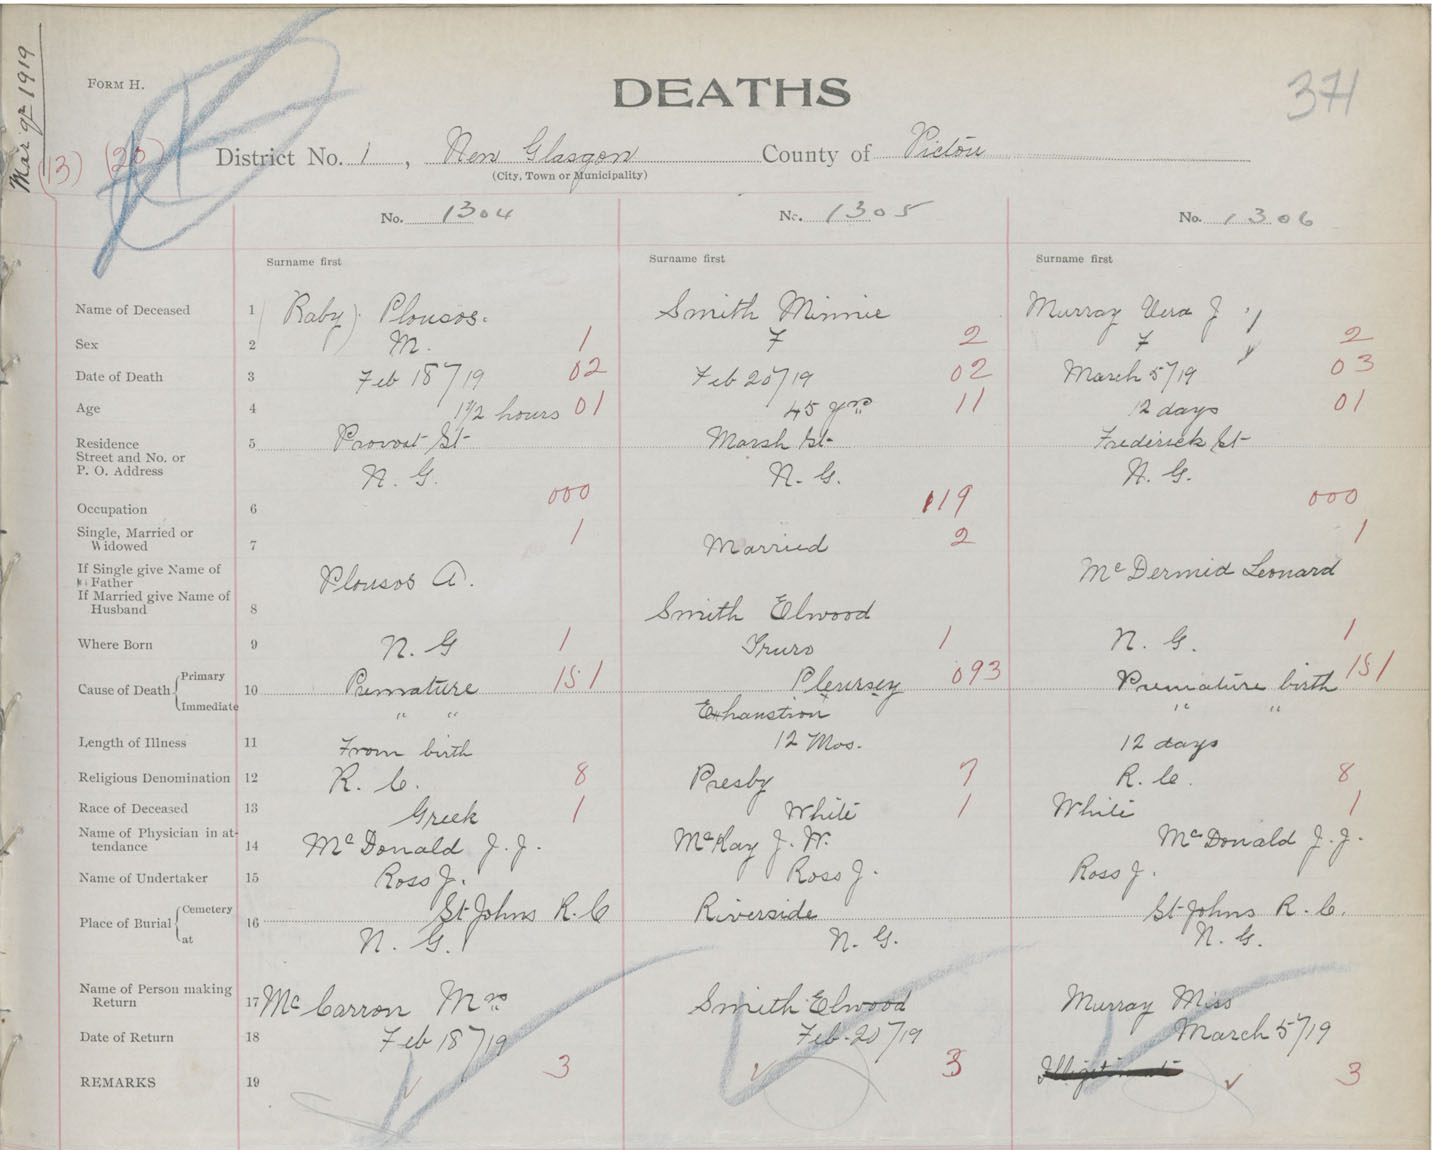 Mar qr 1919
FORM H.
DEATHS
371
(13) (20)
District No. 1, New Glasgow County of Pictou
(City, Town or Municipality)
No. 1304 No. 1305 No. 1306
Surname first Surname first Surname first
Name of Deceased 1 (Baby) Plousos. Smith Minnie Murray Vera J
Sex 2 M. 1 F 2 F 2
Date of Death 3 Feb 18/19 02 Feb 20/19 02 March 5/19 03
Age 4 1 1/2 hours 01 45 yrs 11 12 days 01
Residence 5 Provost St Marsh St Frederick St
Street and No. or
P. O. Address N. G. N. G. N. G.
000 119 000
Occupation 6
Single, Married or 1 2 1
Widowed 7 Married
If Single give Name of Mc Dermid Leonard
Father Plousos A.
If Married give Name of
Husband 8 Smith Elwood
Where Born 9 N. G 1 Truro 1 N. G. 1
Cause of Death Primary 10 Premature 151 Pleursey 093 Premature birth 151
Immediate " " Exhaustion " "
Length of Illness 11 From birth 12 Mos. 12 days
Religious Denomination 12 R. C. 8 Presby 7 R. C. 8
Race of Deceased 13 Greek 1 White 1 White 1
Name of Physician in at-
tendance 14 Mc Donald J. J. McKay J. W. Mc Donald J. J.
Name of Undertaker 15 Ross J. Ross J. Ross J.
Place of Burial Cemetery 16 St Johns R. C Riverside St Johns R. C.
at N. G. N. G. N. G.
Name of Person making
Return 17 Mc Carron Mrs Smith Elwood Murray Miss
Date of Return 18 Feb 18/19 Feb. 20/19 March 5/19
REMARKS 19 3 3 3